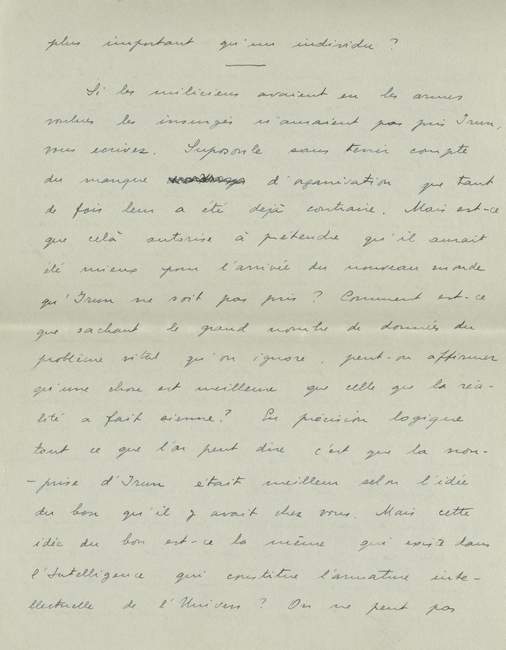 plus important qu'un individu ?
Si les miliciens avaient eu les armes
voulues les insurgés n'auraient pas pris Irun,
vous ecrivez. Suposons-le sans tenir compte
du manque d'organisation que tant
de fois leur a été dejà contraire. Mais est-ce
que celà autorise à prétendre qu'il aurait
été mieux pour l'arrivée du nouveau monde
qu'Irun ne soit pas pris ? Comment est-ce
que sachant le grand nombre de données du
problème vital qu'on ignore, peut-on affirmer
qu'une chose est meilleure que celle que la réa-
lité a fait sienne ? En précision logique
tout ce que l'on peut dire c'est que la non-
-prise d'Irun était meilleur selon l'idée
du bon qu'il y avait chez vous. Mais cette
idée du bon est-ce la même qui existe dans
l'Intelligence qui constitue l'armature inte-
llectuelle de l'Univers ? On ne peut pas